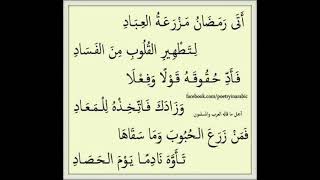 أَتَى رَمَضَانُ مَزْرَعَةُ العِبَادِ
لِتَطْهِيرِ القُلُوبِ مِنَ الفَسَادِ
فَأَدِّ حُقُوقَهُ قَوْلًا وَفِعْلًا
facebook.com/poetryinarabic
وَزَادَكَ فَاتَّخِذْهُ لِلْمَعَادِ
أجمل ما قاله العرب والمسلمون
فَمَنْ زَرَعَ الحُبُوبَ وَمَا سَقَاهَا
تَأَوَّهَ نَادِمًا يَوْمَ الحَصَادِ